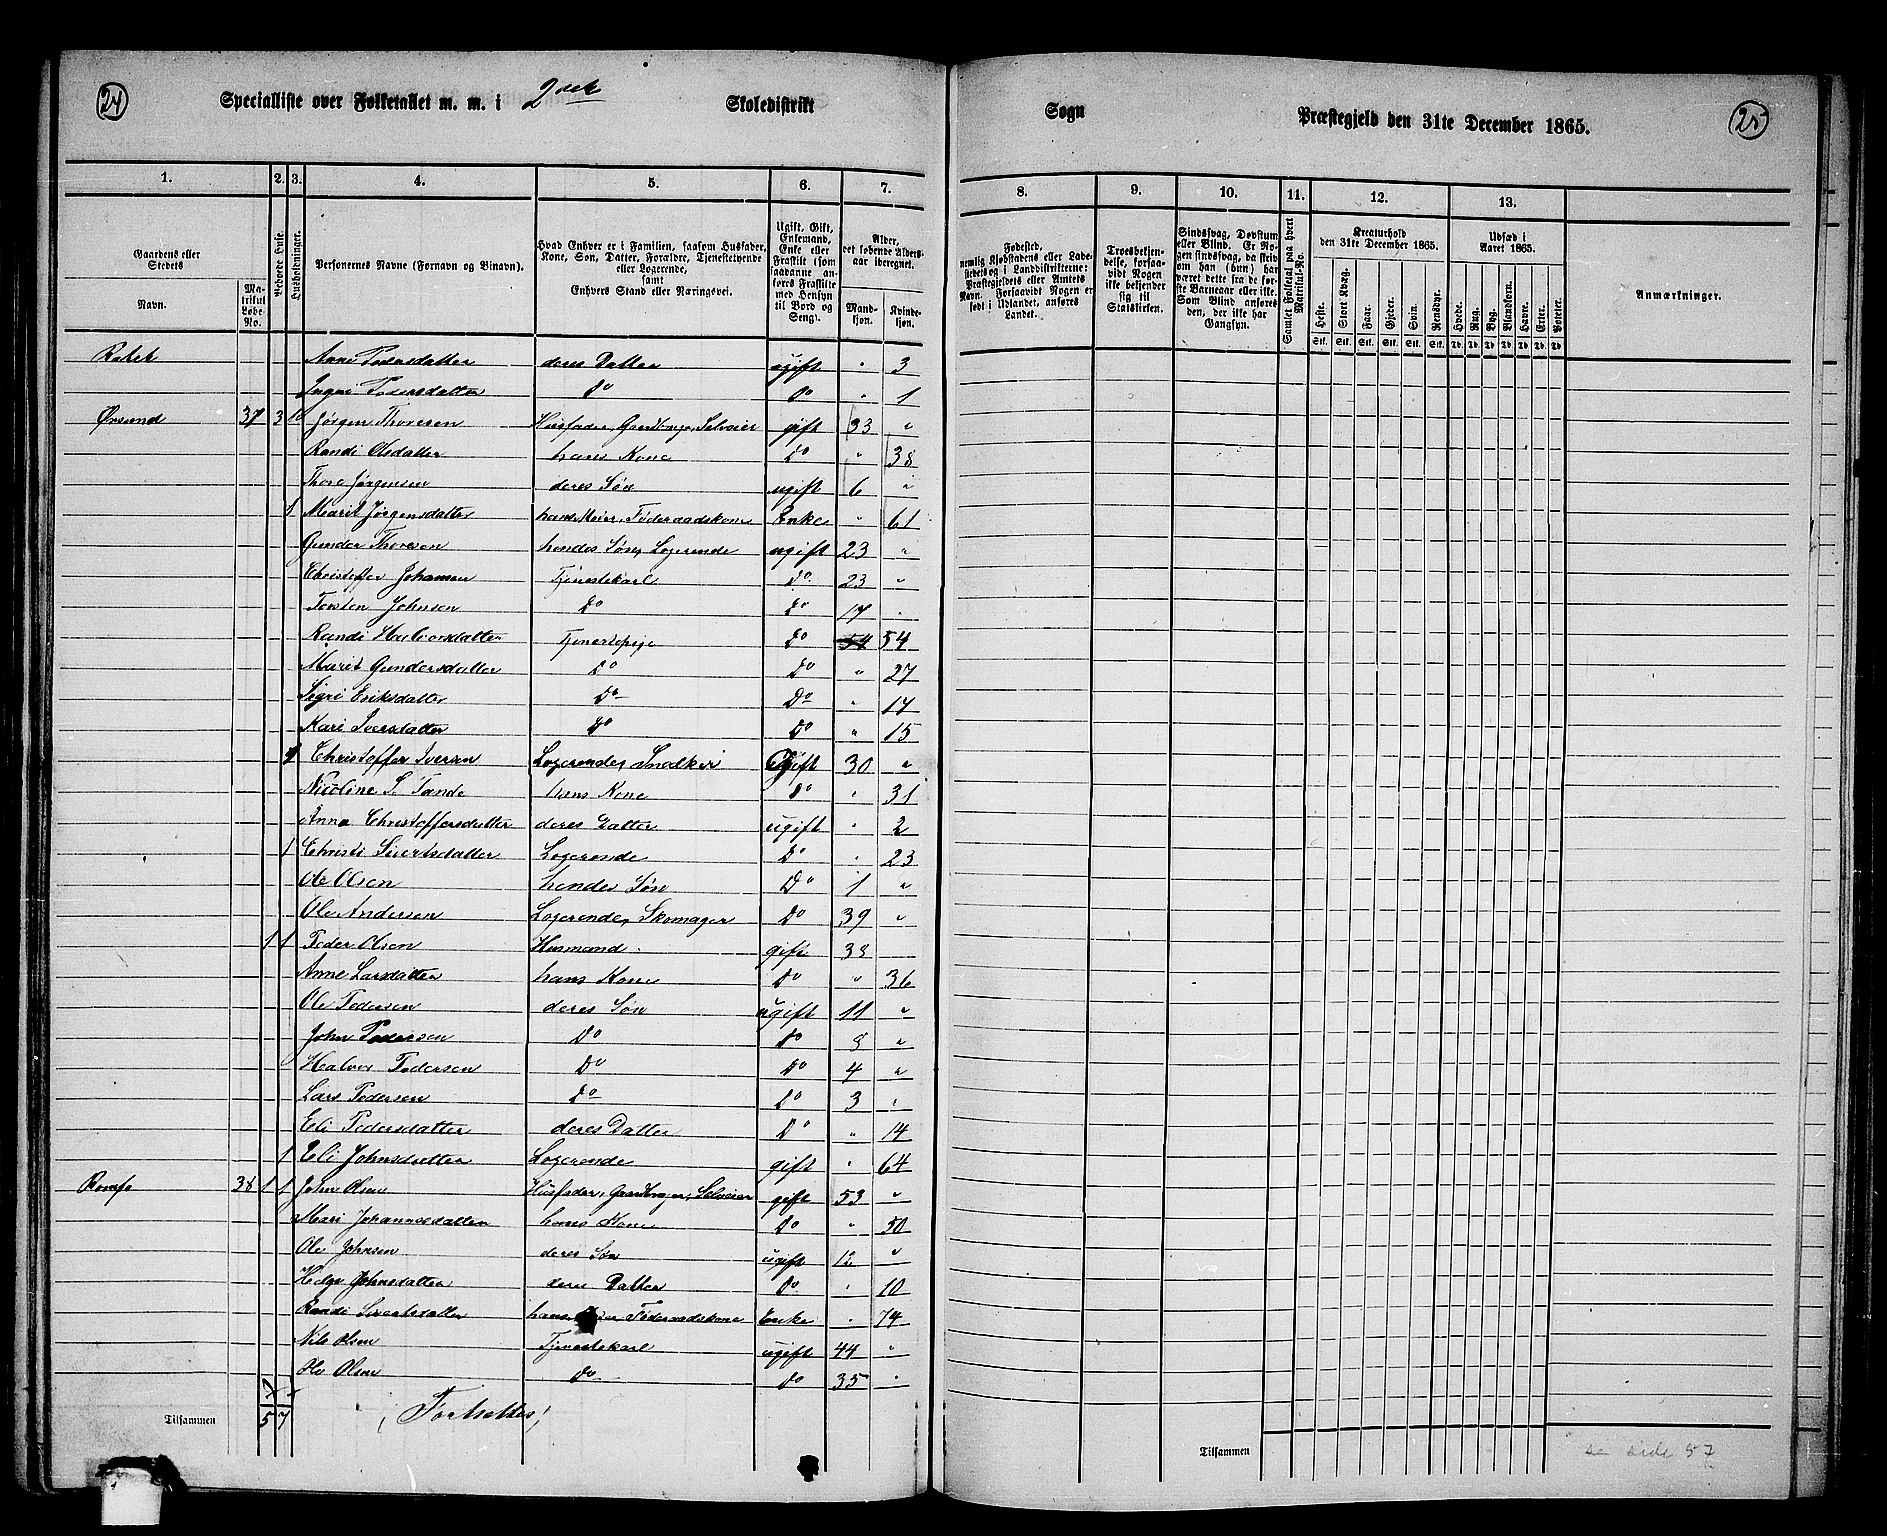 24 Specialliste over Folketallet m. m. i 2det Skoledistrikt
Sogn Præstegjeld den 31te December 1865. 25
1. 2. 3. 4. 5. 6. 7.
8. 9. 10. 11. 12. 13.
Gaardens eller Stedets
Navn. Matrikul Løbe-No.
Bebvede Huse.
Husholdninger.
Personernes Navne (Fornavn og Binavn).
Hvad Enhver er i Familien, saasom Husfader, Kone, Søn, Datter, Forældre, Tjenestetyende eller Logerende, samt Enhvers Stand eller Næringsvei.
Ugift, Gift, Enkemand, Enke eller Fraskilt (som saadanne anføres Fraskilte med Hensyn til Bord og Seng).
Alder, det løbende Aldersaar iberegnet.
Mandkjøn. Kvindekjøn.
Fødested, nemlig Kjøbstadens eller Ladestedets og i Landdistrikterne: Præstegjeldets eller Amtets Navn. Forsaavidt Nogen er født i Udlandet, anføres Landet.
Troesbekjendelse, forsaavidt Nogen ikke bekjender sig til Statskirken.
Sindssvag, Døvstum eller Blind. Er Nogen sindssvag, da skrives om han (hun) har været dette fra de første Barneaar eller ikke. Som Blind ansøres den, der ikke har Gangsyn.
Samlet Folketal paa hvert Matrikul-No.
Kreaturhold den 31te December 1865.
Heste. Stort Kvæg. Faar. Gjeder. Svin. Rensdyr.
Udsæd i Aaret 1865.
Hvede. Rug. Byg. Blandkorn. Havre. Erter. Poteter.
Anmærkninger.
Stk. Stk. Stk. Stk. Stk. Stk. Td. Td. Td. Td. Td. Td. Td.
Anne Pedersdatter deres Datter ugift " 3
Inger Pedersdatter Do Do " 1
Ørsund 37 3 1 Jørgen Thoresen Husfader, Gaardbruger, Selveier gift 33 "
Randi Olsdatter hans Kone Do " 38
Thore Jørgensen deres Søn ugift 6 "
1 Marit Jørgensdatter hans Moder, Føderaadskone Enke " 61
Gunder Thoresen hendes Søn, Logerende ugift 23 "
Christoffer Johansen Tjenestekarl Do 23 "
Torsten Johnsen Do Do 17 "
Randi Halvorsdatter Tjenestepige Do 54 54
Marit Gundersdatter Do Do " 27
Sigri Eriksdatter Do Do " 14
Kari Iversdatter Do Do " 15
1 Christoffer Iversen Logerende, Snedker Gift 30 "
Nicoline S. Tande hans Kone Do " 31
Anna Christoffersdatter deres Datter ugift " 2
1 Christi Sivertsdatter Logerende Do " 23
Ole Olsen hendes Søn Do 1 "
Ole Andersen Logerende, Skomager Do 39 "
1 1 Peder Olsen Husmand gift 38
Anne Larsdatter hans Kone Do " 36
Ole Pedersen deres Søn ugift 11 "
John Pedersen Do Do 8 "
Halvor Pedersen Do Do 4 "
Lars Pedersen Do Do 3 "
Eli Pedersdatter deres Datter Do " 14
1 Eli Johnsdatter Logerende gift " 64
Romfo 38 1 1 John Olsen Husfader, Gaardbruger, Selveier gift 53 "
Mari Johannesdatter hans Kone Do " 50
Ole Johnsen deres Søn ugift 12 "
Helge Johnsdatter deres Datter Do " 10
Randi Sivertsdatter hans Moder, Føderaadskone Enke " 74
Nils Olsen Tjenestekarl ugift 44 "
Ole Olsen Do Do 35 "
Tilsammen 5 7 (Fortsættes)
Tilsammen se side 57